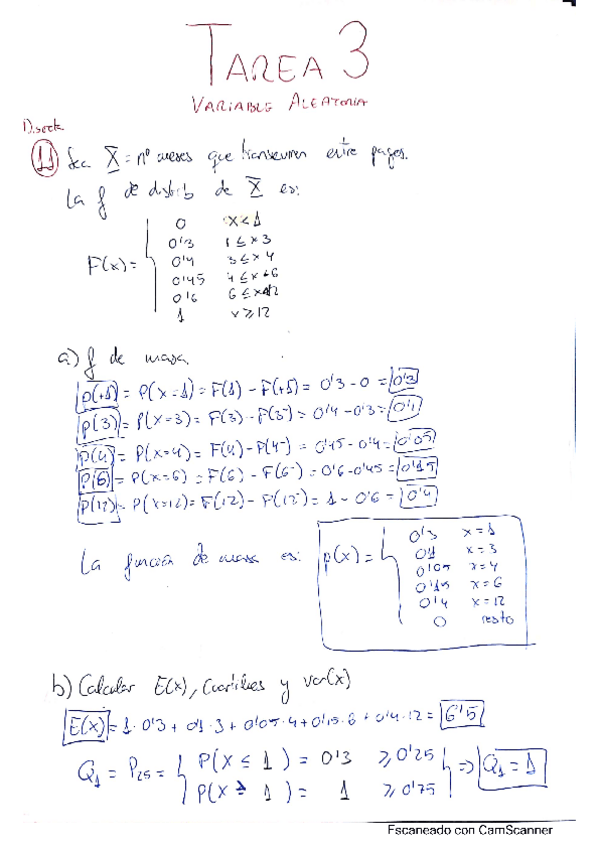 TAREA 3
VARIABLE ALEATORIA
11 Sea X = nº meses que transcurren entre pagos.
La f de distrib de X es:
F(x) =
0 x<1
0'3 1≤x<3
0'4 3≤x<4
0'45 4≤x<6
0'6 6≤x<12
1 x≥12
a) f de masa
p(1) = P(X=1) = F(1) - F(1) = 0'3 - 0 = 0'3
p(3) = P(X=3) = F(3) - F(3⁻) = 0'4 - 0'3 = 0'1
p(4) = P(X=4) = F(4) - F(4⁻) = 0'45 - 0'4 = 0'05
P(6) = P(X=6) = F(6) - F(6⁻) = 0'6 - 0'45 = 0'15
P(12) = P(X=12) = F(12) - F(12⁻) = 1 - 0'6 = 0'4
La función de masa es: p(x) =
0'3 x=1
0'1 x=3
0'05 x=4
0'15 x=6
0'4 x=12
0 resto
b) Calcular E(x), Cuartiles y var(x)
E(x) = 1·0'3 + 0'1·3 + 0'05·4 + 0'15·6 + 0'4·12 = 6'5
Q₁ = P₂₅ = P(X ≤ 1) = 0'3 ≥ 0'25
P(X ≥ 1) = 1 ≥ 0'75
⇒ Q₁ = 1
Escaneado con CamScanner